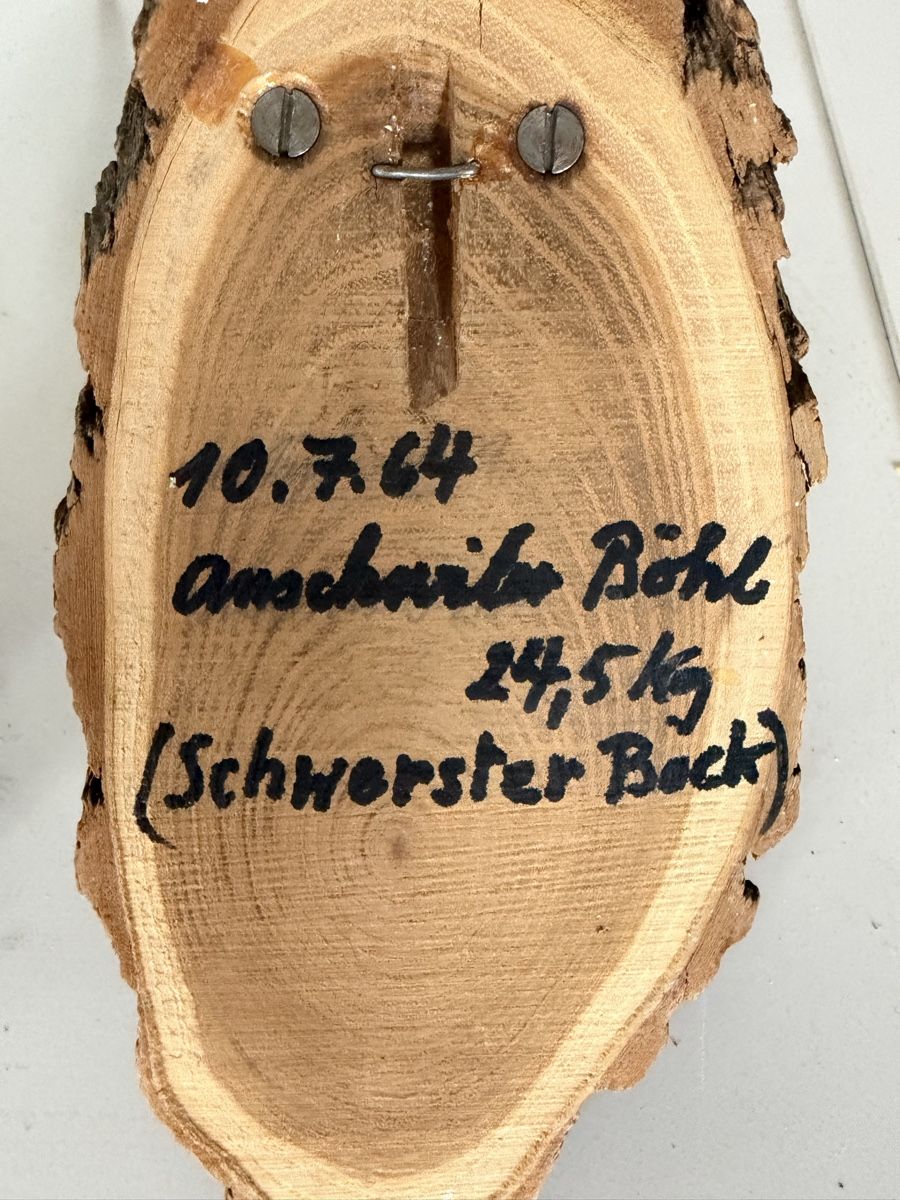 10.7.64
Böhl
24,5 kg
(Schwerster Bock)